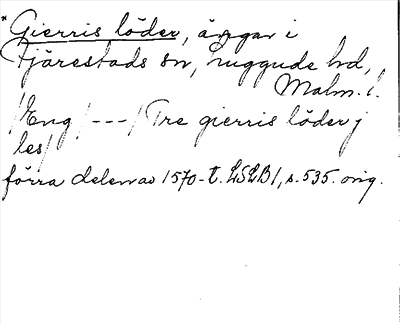 * Gierris löder, ängar i
Tjärestads sn, Luggude hd,
Malm. l.
/Eng/ --- / Tre gierris löder j
les/
förra delen av 1570-t. LSLB 1, s. 535. orig.